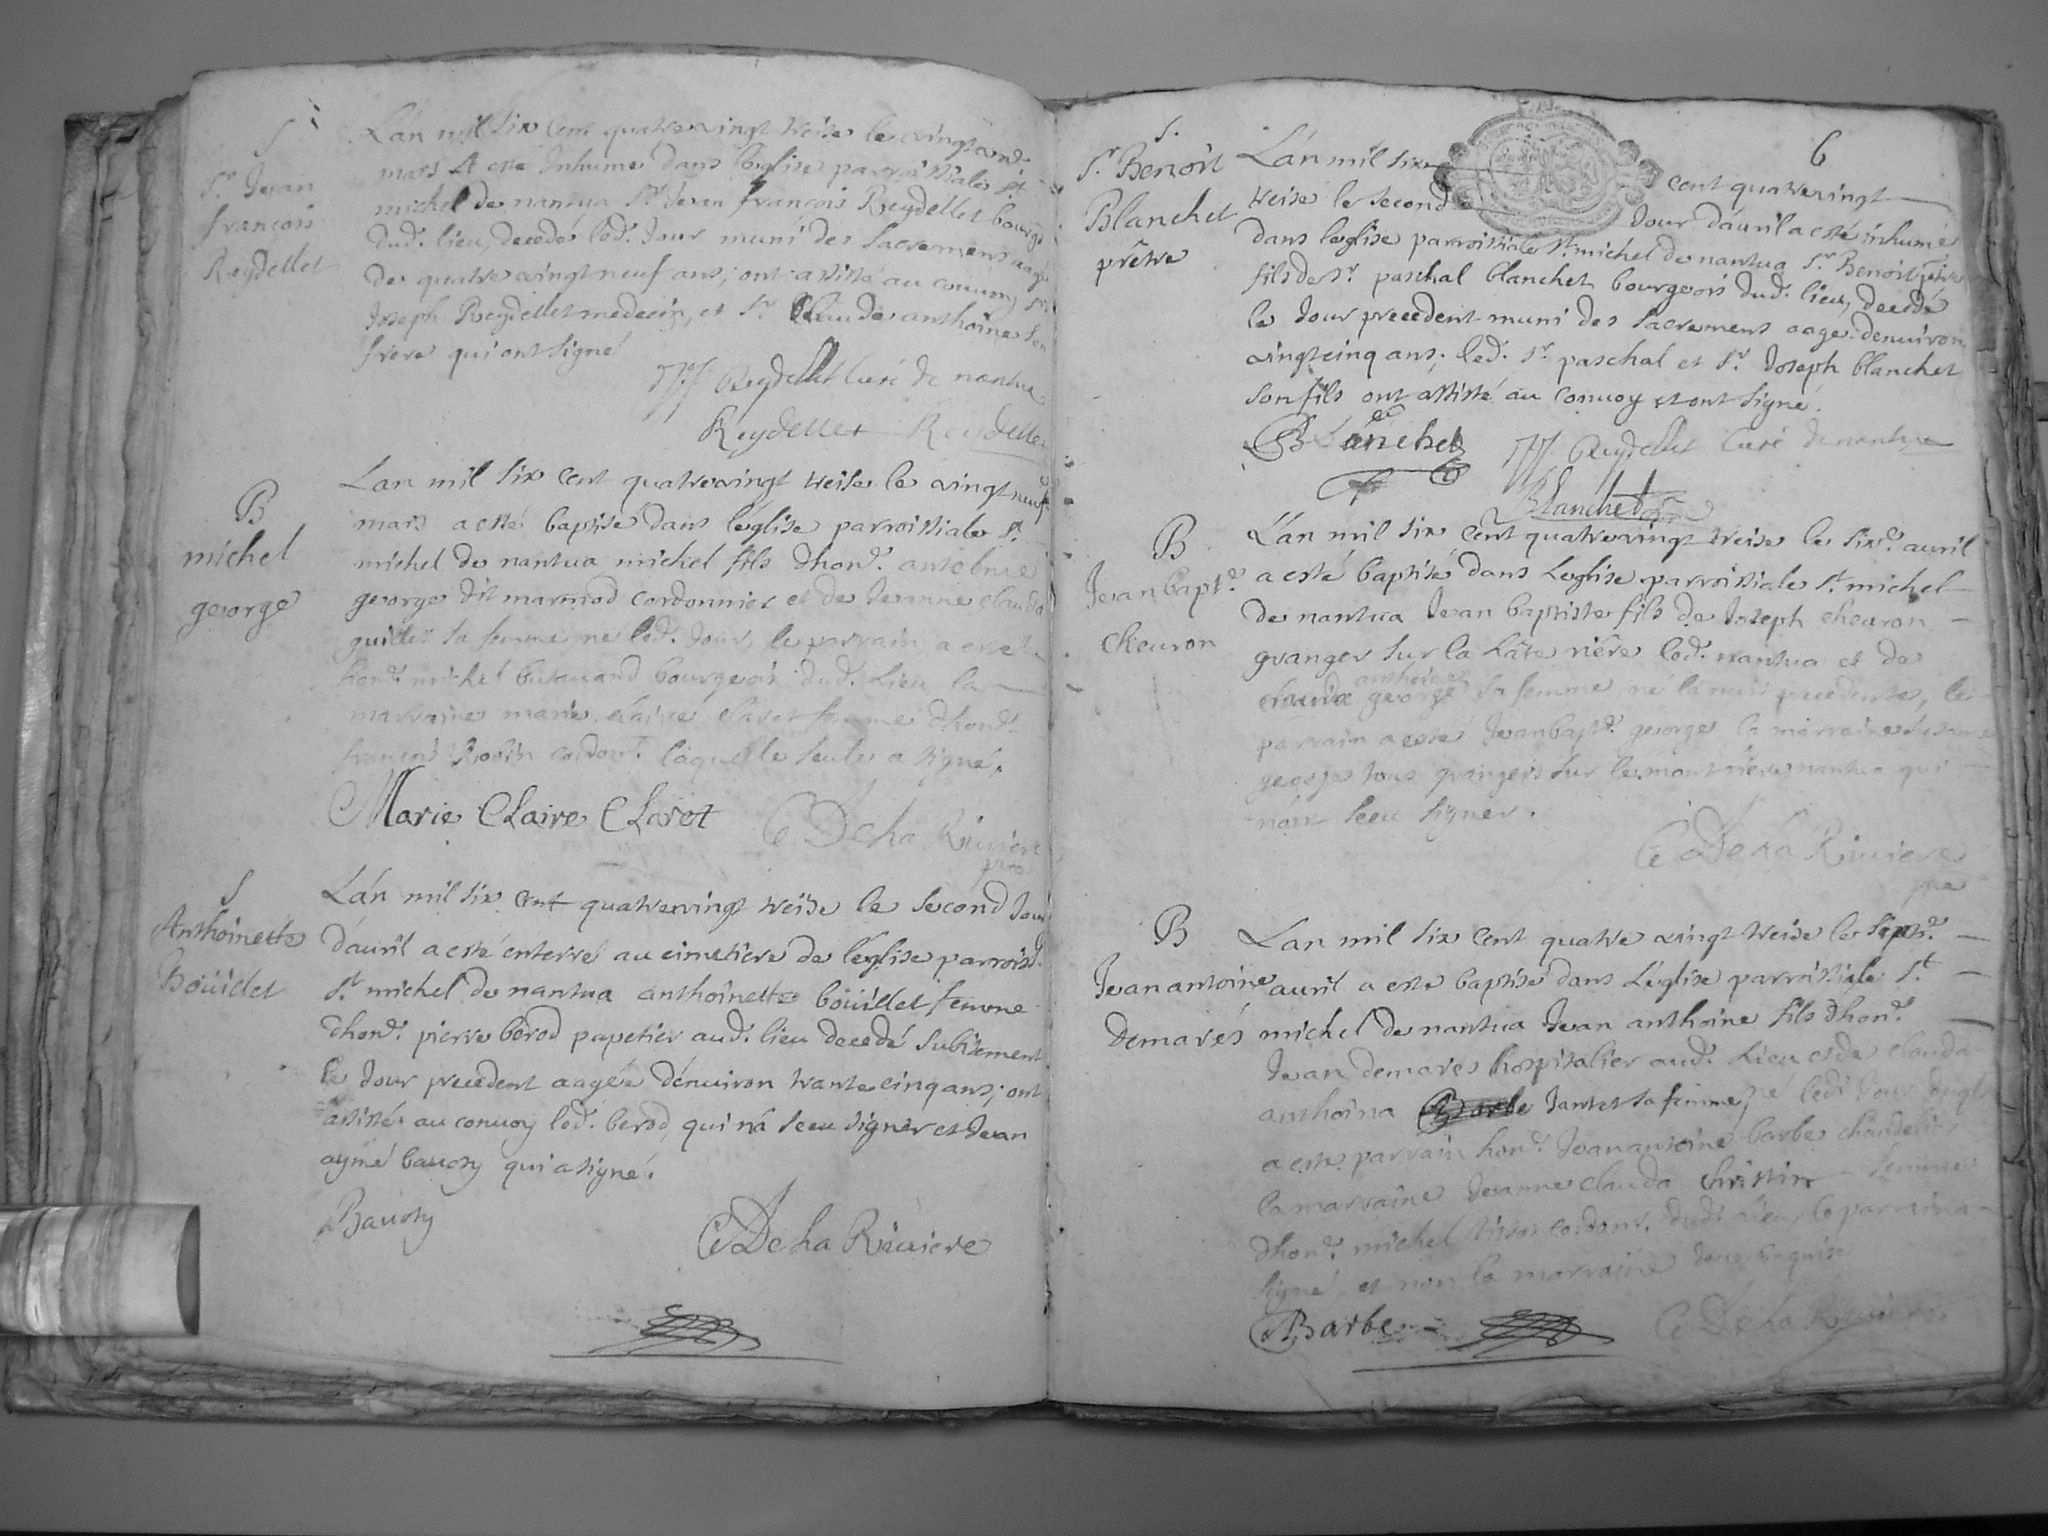 S
Sr Jean
françois
Reydellet
L'an mil six cent quatrevingt treise le vingt
mars A esté Inhumé dans l'église parroissiale St
michel de nantua Sr Jean françois Reydellet bourgs
dud. lieu, decedé led. Jour muni des sacremens aagé
de quatrevingt neuf ans; ont assisté au convoy Sr
Joseph Reydellet medecin, et Sr Claude anthoine son
frere qui ont signé
Reydellet Curé de nantua
Reydellet Reydellet
B
michel
george
Lan mil six cent quatrevingt treise le vingt neuf
mars a esté baptisé dans l'église parroissiale St
michel de nantua michel fils d'hon. antoine
george dit marmod cordonnier et de Jeanne clauda
guillet sa femme né led. Jour, le parrain a esté
hon. michel bourgeois dud. Lieu, la
marraine marie claire claret femme d'hon.
françois Robin cordon. laquelle seule a signé.
Marie Claire Claret C De La Riuiere
ptre
S
Anthoinette
Boüillet
L'an mil six cent quatrevingt treise le second Jour
d'auril a esté enterré au cimetiere de l'église parroiss.
St michel de nantua anthoinette boüillet femme
d'hon. pierre berod papetier aud. lieu decedé subitement
le Jour precedent aagée d'enuiron trante cinq ans; ont
assisté au conuoy led. berod, qui n'a sceu signer et Jean
aymé bauoy qui a signé.
Bauoy C De La Riuiere
6
S.
Sr Benoit
Blanchet
prêtre
L'an mil six cent quatrevingt
treise le second Jour d'auril a esté inhumé
dans l'eglise parroissiale St michel de nantua Sr Benoit ptre
fils de Sr paschal blanchet bourgeois dud. lieu, decedé
le Jour precedent muni des sacremens aagé d'enuiron
vingtcinq ans. led. Sr paschal et Sr Joseph blanchet
son fils ont assisté au conuoy et ont signé.
Blanchet Reydellet Curé de nantua
Blanchet
B
Jean bapt.e
cheuron
L'an mil six cent quatrevingt treise le six.e auril
a esté baptisé dans Leglise parroissiale St michel
de nantua Jean baptiste fils de Joseph cheuron
granger sur la Lâte riére led. nantua et de
clauda anthoina george sa femme, né la nuit precedente, le
parrain a esté Jean bapt.e george la marraine Susanne
george tous grangers sur le mont riére nantua qui
n'ont sceu signer.
C De La Riuiere
ptre
B
Jean antoine
demarés
Lan mil six cent quatre vingt treise le sept.e
auril a esté baptisé dans L'église parroissiale St
michel de nantua Jean anthoine fils d'hon.
Jean demarés hospitalier aud. Lieu et de clauda
anthoina Jantet sa femme, né led. Jour
a esté parrain hon. Jean antoine barbe
la marraine Jeanne clauda christin femme
d'hon. michel cordon. dud. lieu, le parrain a
signé, et non la marraine de ce enquise
Barbe C De La Riuiere